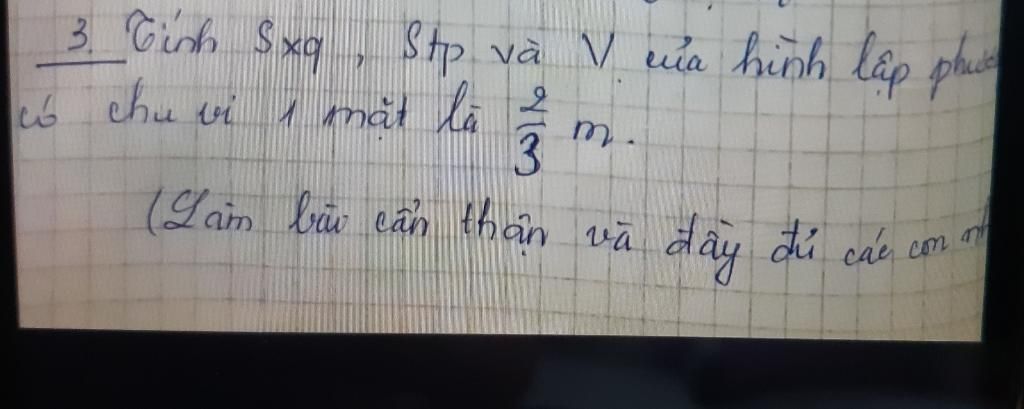 3. Tính Sxq, Stp và V của hình lập
có chu vi 1 mặt là 2/3 m.
(Làm bài cẩn thận và đầy đủ các con